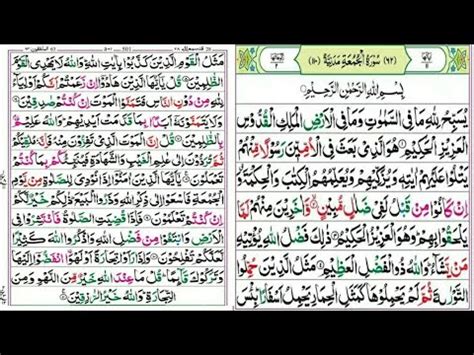 سُوْرَةُ الْجُمُعَةِ مَدَنِيَّةٌ (٦٢) (١١٠)
بِسْمِ اللّٰهِ الرَّحْمٰنِ الرَّحِيْمِ
يُسَبِّحُ لِلّٰهِ مَا فِي السَّمٰوٰتِ وَمَا فِي الْاَرْضِ الْمَلِكِ الْقُدُّوْسِ
الْعَزِيْزِ الْحَكِيْمِ هُوَ الَّذِيْ بَعَثَ فِي الْاُمِّيّٖنَ رَسُوْلًا مِّنْهُمْ
يَتْلُوْا عَلَيْهِمْ اٰيٰتِهٖ وَيُزَكِّيْهِمْ وَيُعَلِّمُهُمُ الْكِتٰبَ وَالْحِكْمَةَ وَ
اِنْ كَانُوْا مِنْ قَبْلُ لَفِيْ ضَلٰلٍ مُّبِيْنٍ وَّاٰخَرِيْنَ مِنْهُمْ لَمَّا
يَلْحَقُوْا بِهِمْ وَهُوَ الْعَزِيْزُ الْحَكِيْمُ ذٰلِكَ فَضْلُ اللّٰهِ يُؤْتِيْهِ
مَنْ يَّشَآءُ وَاللّٰهُ ذُو الْفَضْلِ الْعَظِيْمِ مَثَلُ الَّذِيْنَ حُمِّلُوا
التَّوْرٰىةَ ثُمَّ لَمْ يَحْمِلُوْهَا كَمَثَلِ الْحِمَارِ يَحْمِلُ اَسْفَارًا بِئْسَ
مَثَلُ الْقَوْمِ الَّذِيْنَ كَذَّبُوْا بِاٰيٰتِ اللّٰهِ وَاللّٰهُ لَا يَهْدِي الْقَوْمَ
الظّٰلِمِيْنَ قُلْ يٰٓاَيُّهَا الَّذِيْنَ هَادُوْٓا اِنْ زَعَمْتُمْ اَنَّكُمْ اَوْلِيَآءُ
لِلّٰهِ مِنْ دُوْنِ النَّاسِ فَتَمَنَّوُا الْمَوْتَ اِنْ كُنْتُمْ صٰدِقِيْنَ
وَلَا يَتَمَنَّوْنَهٗٓ اَبَدًا بِمَا قَدَّمَتْ اَيْدِيْهِمْ وَاللّٰهُ عَلِيْمٌ
بِالظّٰلِمِيْنَ قُلْ اِنَّ الْمَوْتَ الَّذِيْ تَفِرُّوْنَ مِنْهُ فَاِنَّهٗ مُلٰقِيْكُمْ
ثُمَّ تُرَدُّوْنَ اِلٰى عٰلِمِ الْغَيْبِ وَالشَّهَادَةِ فَيُنَبِّئُكُمْ بِمَا كُنْتُمْ
تَعْمَلُوْنَ يٰٓاَيُّهَا الَّذِيْنَ اٰمَنُوْٓا اِذَا نُوْدِيَ لِلصَّلٰوةِ مِنْ يَّوْمِ
الْجُمُعَةِ فَاسْعَوْا اِلٰى ذِكْرِ اللّٰهِ وَذَرُوا الْبَيْعَ ذٰلِكُمْ خَيْرٌ لَّكُمْ
اِنْ كُنْتُمْ تَعْلَمُوْنَ فَاِذَا قُضِيَتِ الصَّلٰوةُ فَانْتَشِرُوْا فِي
الْاَرْضِ وَابْتَغُوْا مِنْ فَضْلِ اللّٰهِ وَاذْكُرُوا اللّٰهَ كَثِيْرًا
لَّعَلَّكُمْ تُفْلِحُوْنَ وَاِذَا رَاَوْا تِجَارَةً اَوْ لَهْوَا ۨانْفَضُّوْٓا اِلَيْهَا
وَتَرَكُوْكَ قَآئِمًا قُلْ مَا عِنْدَ اللّٰهِ خَيْرٌ مِّنَ اللَّهْوِ وَمِنَ
التِّجَارَةِ وَاللّٰهُ خَيْرُ الرّٰزِقِيْنَ